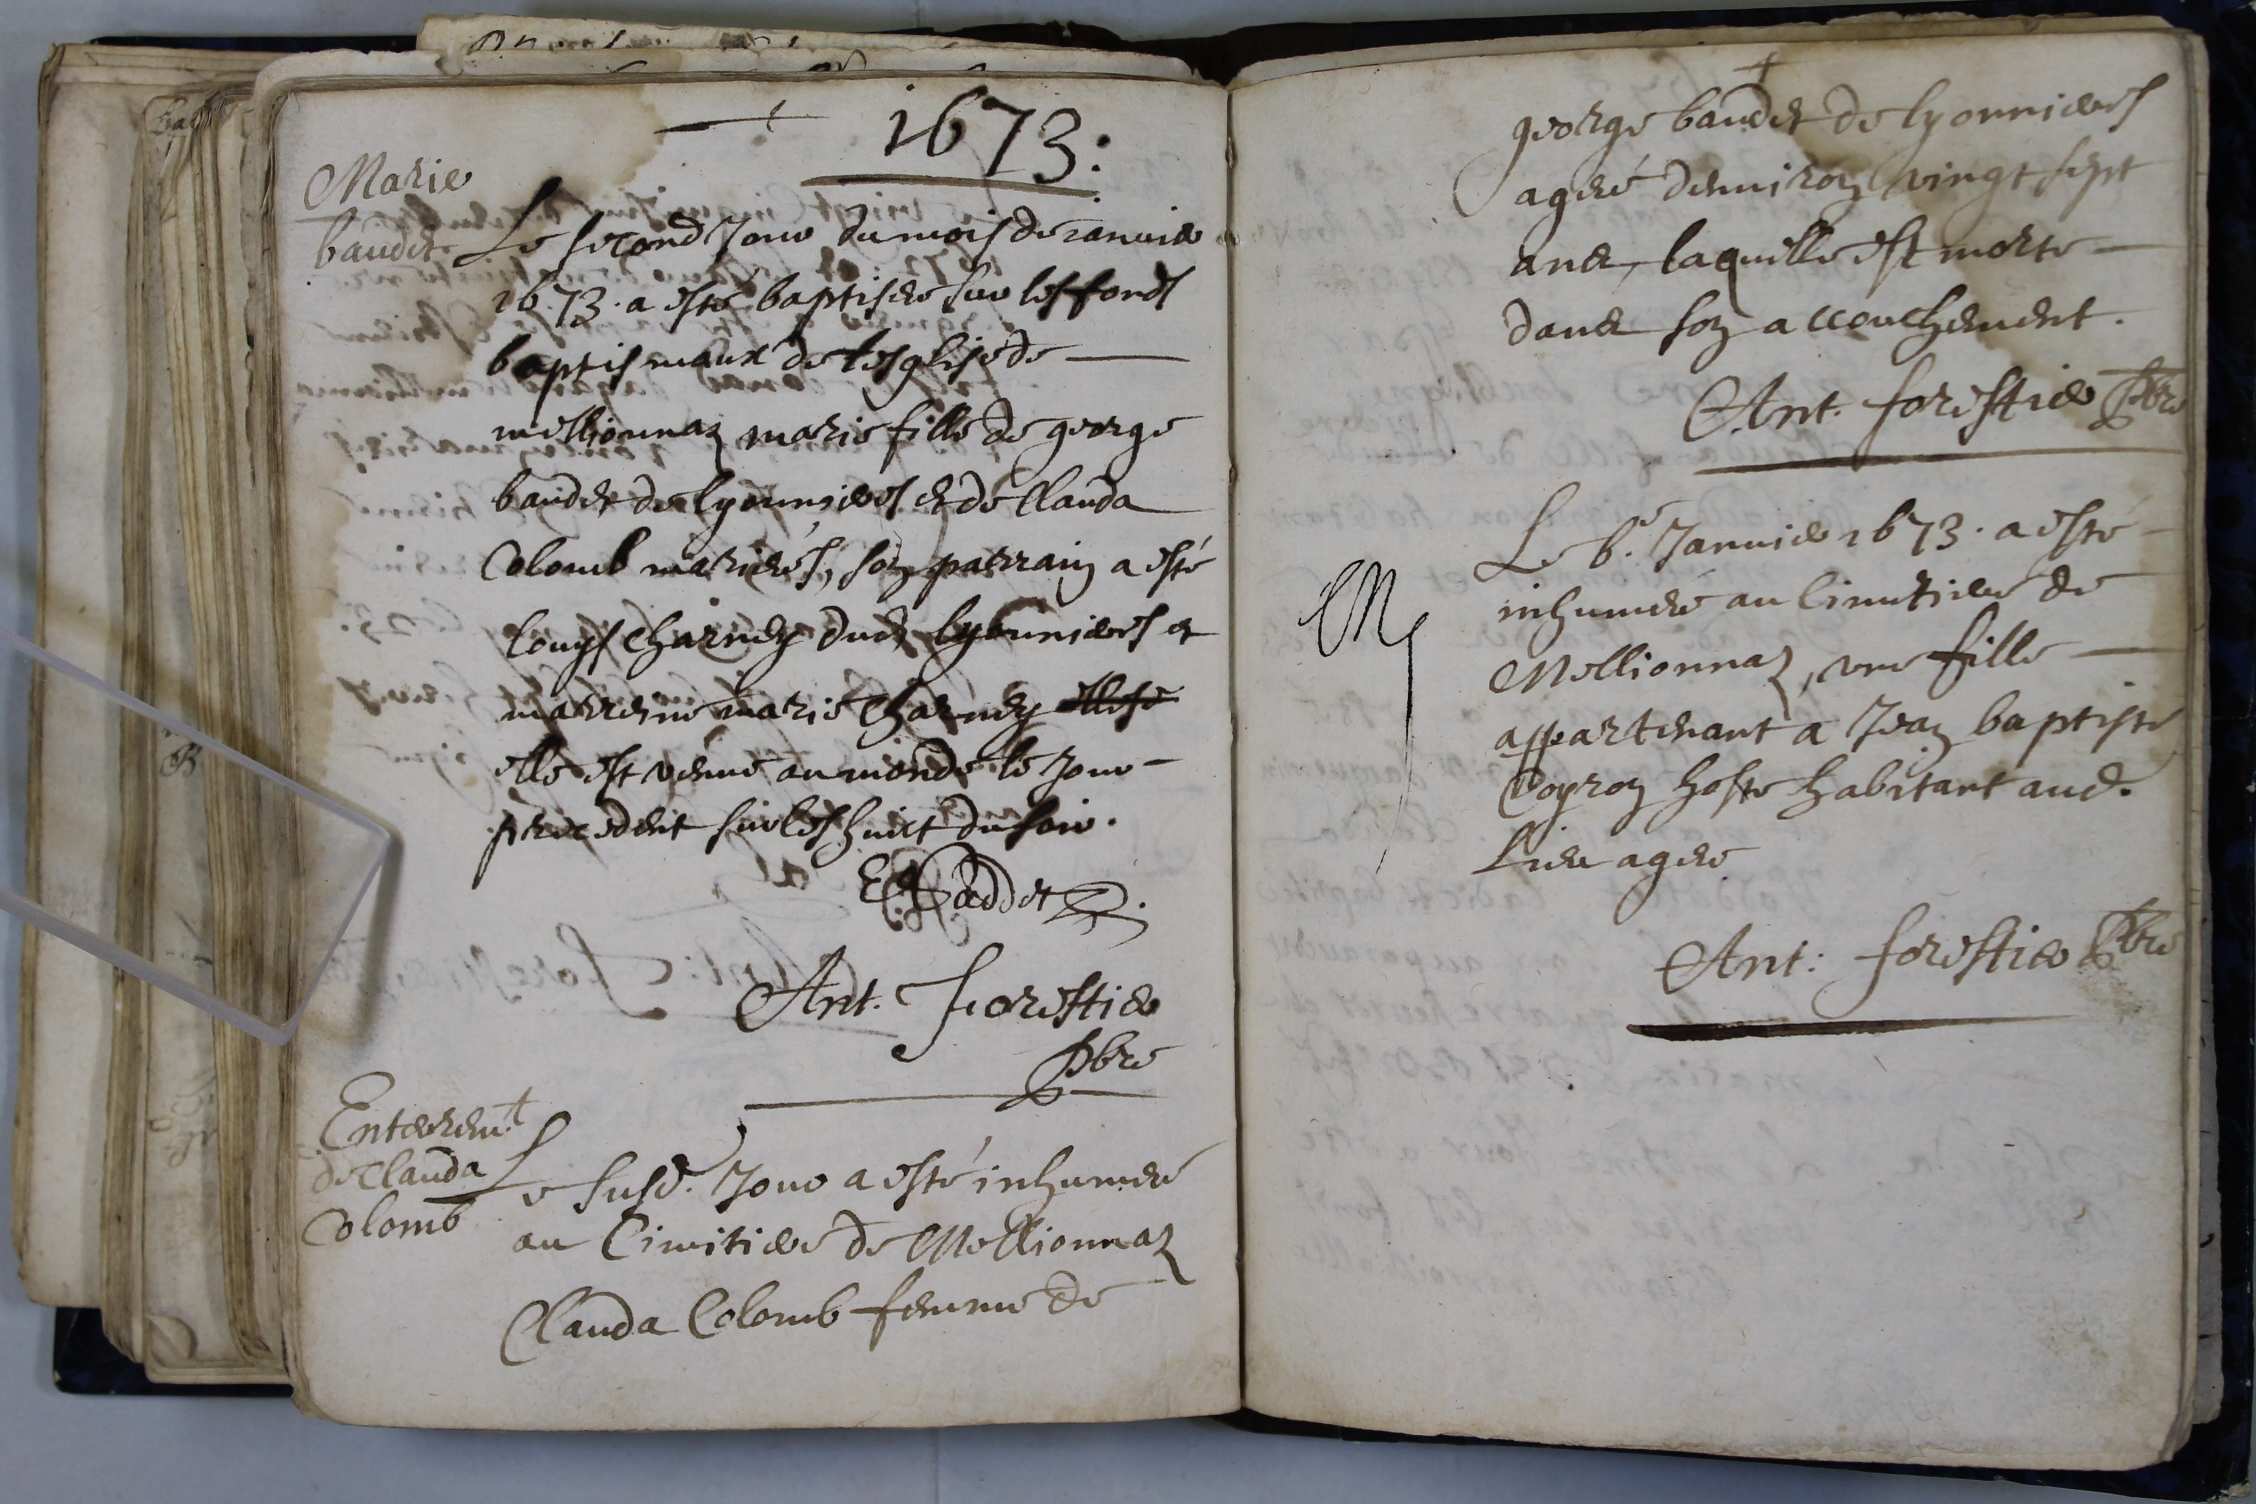 1673:
Marie
baudet
Le second Jour du mois de ianvier
1673. a esté baptisée sur les fonds
baptismaux de lesglise de
mellionnaz marie fille de george
baudet de lyonnieres et de Clauda
Colomb mariées, son parrain a esté
louys Charney dud. lyonnieres et
marreine marie Charney ellese
elle est venue au monde le Jour
precedent sur les huict du soir.
Baddet
Ant. forestier
pbre
Enterem.t
de Clauda
Colomb
Le susd. Jour a esté inhumée
au Cimitiere de Mellionnaz
Clauda Colomb femme de
george baudet de lyonnieres
agée denviron vingt sept
ans, laquelle est morte
dans son accouchement.
Ant. forestier pbre
Le 6.e Janvier 1673. a esté
inhumée au Cimetiere de
Mellionnaz, une fille
appartenant a Jean baptiste
hoste habitant aud.
Lieu agee
Ant: forestier pbre